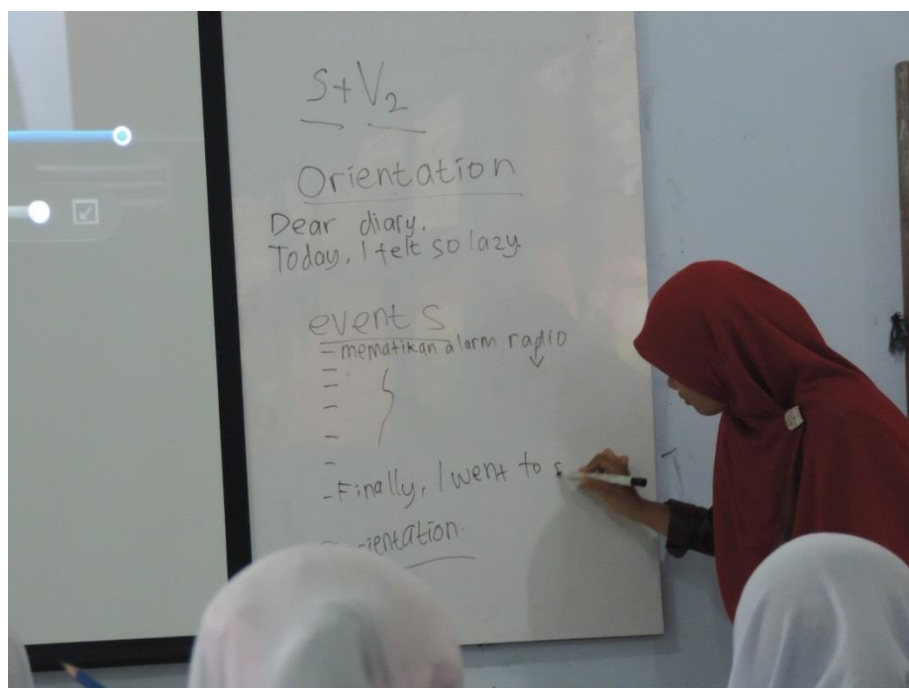 S+V2
Orientation
Dear diary,
Today, I felt so lazy.
events
- mematikan alarm radio
-
-
-
-
-
- Finally, I went to s